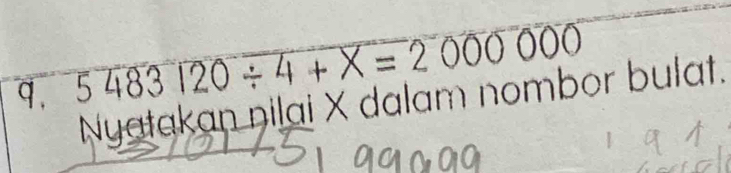 9. 5 483 120 ÷ 4 + X = 2 000 000
Nyatakan nilai X dalam nombor bulat.
1 9 1